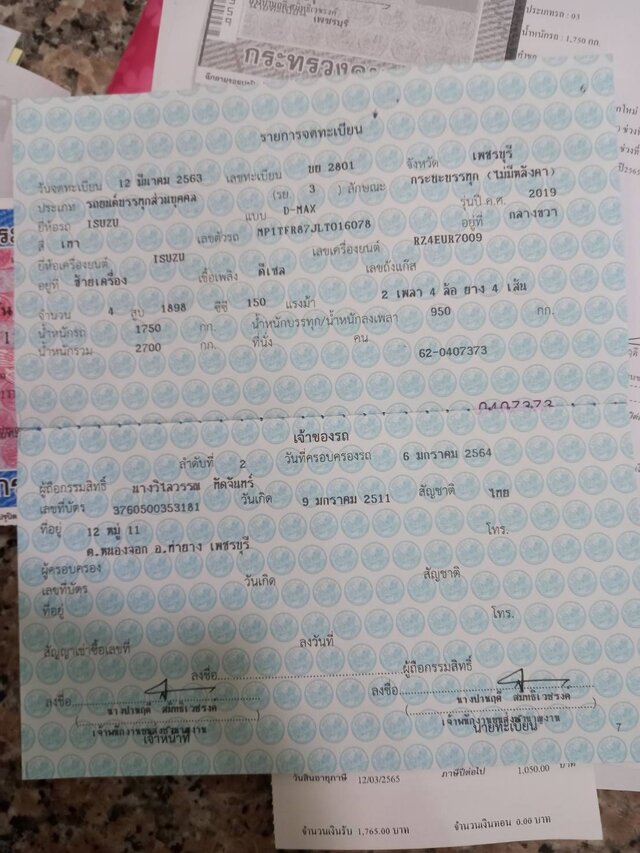 เพชรบุรี
ประเภทรถ : 03
น้ำหนักรถ : 1,750 กก.
6
รายการจดทะเบียน
วันจดทะเบียน 12 มีนาคม 2563 เลขทะเบียน บย 2801 จังหวัด เพชรบุรี
ประเภท รถยนต์บรรทุกส่วนบุคคล (รย. 3 ) ลักษณะ กระบะบรรทุก (ไม่มีหลังคา)
ยี่ห้อรถ ISUZU แบบ D-MAX รุ่นปี ค.ศ. 2019
สี เทา เลขตัวรถ MP1TFR87JLT016078 อยู่ที่ กลางขวา
ยี่ห้อเครื่องยนต์ ISUZU เลขเครื่องยนต์ RZ4EUR7009
อยู่ที่ ซ้ายเครื่อง เชื้อเพลิง ดีเซล เลขถังแก๊ส
จำนวน 4 สูบ 1898 ซีซี 150 แรงม้า 2 เพลา 4 ล้อ ยาง 4 เส้น
น้ำหนักรถ 1750 กก. น้ำหนักบรรทุก/น้ำหนักลงเพลา 950 กก.
น้ำหนักรวม 2700 กก. ที่นั่ง คน
62-0407373
0407373
เจ้าของรถ
ลำดับที่ 2 วันที่ครอบครองรถ 6 มกราคม 2564
ผู้ถือกรรมสิทธิ์ นางวิไลวรรณ ทัดจันทร์
เลขที่บัตร 3760500353181 วันเกิด 9 มกราคม 2511 สัญชาติ ไทย
ที่อยู่ 12 หมู่ 11 โทร.
ต.หนองจอก อ.ท่ายาง เพชรบุรี
ผู้ครอบครอง
เลขที่บัตร วันเกิด สัญชาติ
ที่อยู่ โทร.
สัญญาเช่าซื้อเลขที่ ลงวันที่
ลงชื่อ ผู้ถือกรรมสิทธิ์
ลงชื่อ ลงชื่อ
เจ้าพนักงานขนส่งชำนาญงาน เจ้าพนักงานขนส่งชำนาญงาน
เจ้าหน้าที่ นายทะเบียน
7
วันสิ้นอายุภาษี 12/03/2565 ภาษีปีต่อไป 1,050.00 บาท
จำนวนเงินรับ 1,765.00 บาท จำนวนเงินทอน 0.00 บาท